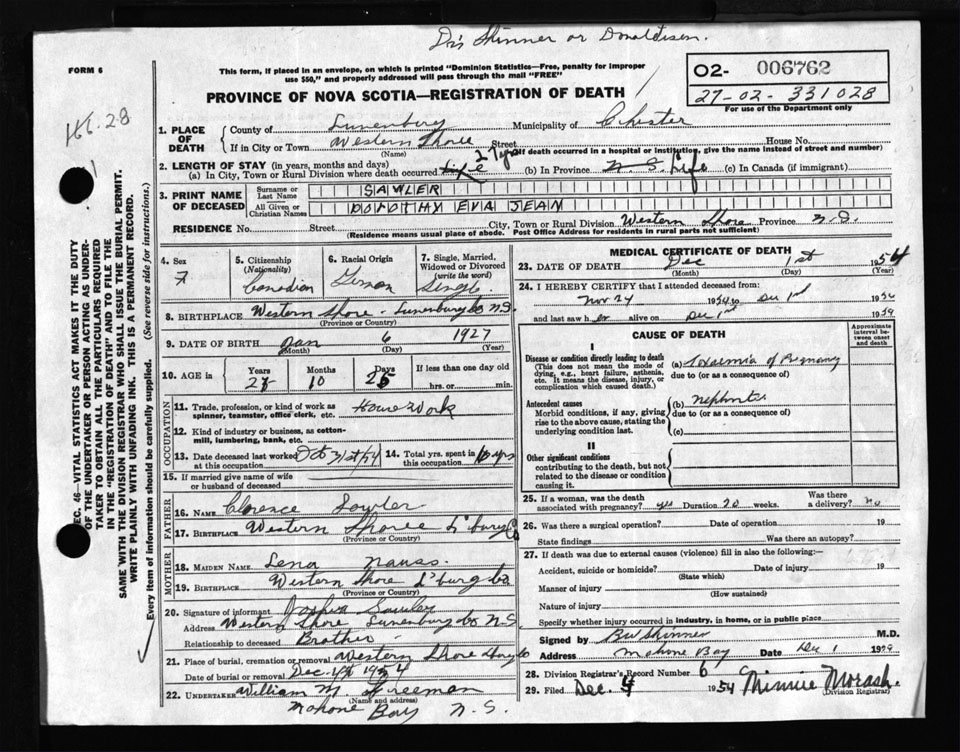 Drs Skinner or Donaldson.
FORM 6
This form, if placed in an envelope, on which is printed "Dominion Statistics—Free, penalty for improper
use $50," and properly addressed will pass through the mail "FREE"
PROVINCE OF NOVA SCOTIA—REGISTRATION OF DEATH
02- 006762
27-02-331028
For use of the Department only
166.28
1. PLACE OF DEATH
County of Lunenburg Municipality of Chester
If in City or Town Western Shore Street House No.
(Name) If death occurred in a hospital or institution, give the name instead of street and number)
2. LENGTH OF STAY (in years, months and days)
(a) In City, Town or Rural Division where death occurred life 27 yrs (b) In Province N.S. Life (c) In Canada (if immigrant)
3. PRINT NAME OF DECEASED
Surname or Last Name SAWLER
All Given or Christian Names DOROTHY EVA JEAN
RESIDENCE No. Street City, Town or Rural Division Western Shore Province N.S.
(Residence means usual place of abode. Post Office Address for residents in rural parts not sufficient)
SEC. 46—VITAL STATISTICS ACT MAKES IT THE DUTY
OF THE UNDERTAKER OR PERSON ACTING AS UNDER-
TAKER TO OBTAIN ALL THE PARTICULARS REQUIRED
IN THE "REGISTRATION OF DEATH" AND TO FILE THE
SAME WITH THE DIVISION REGISTRAR WHO SHALL ISSUE THE BURIAL PERMIT.
WRITE PLAINLY WITH UNFADING INK. THIS IS A PERMANENT RECORD.
Every item of information should be carefully supplied. (See reverse side for instructions.)
4. Sex
F
5. Citizenship
(Nationality)
Canadian
6. Racial Origin
German
7. Single, Married, Widowed or Divorced
(write the word)
Single
8. BIRTHPLACE Western Shore - Lunenburg Co N.S.
(Province or Country)
9. DATE OF BIRTH Jan 6 1927
(Month) (Day) (Year)
10. AGE in
Years Months Days If less than one day
27 10 25 hrs. or min.
OCCUPATION
11. Trade, profession, or kind of work as
spinner, teamster, office clerk, etc. House Work
12. Kind of industry or business, as cotton-
mill, lumbering, bank, etc.
13. Date deceased last worked at this occupation Oct 31st/54
14. Total yrs. spent in this occupation 10 yrs
15. If married give name of wife
or husband of deceased
FATHER
16. NAME Clarence Sawler
17. BIRTHPLACE Western Shore L'burg Co
(Province or Country)
MOTHER
18. MAIDEN NAME Lena Nauss.
19. BIRTHPLACE Western Shore L'burg Co.
(Province or Country)
20. Signature of informant Joshua Sawler
Address Western Shore Lunenburg Co N.S.
Relationship to deceased Brother
21. Place of burial, cremation or removal Western Shore
Date of burial or removal Dec. 4th 1954
22. UNDERTAKER William M. Freeman
(Name and address)
Mahone Bay N.S.
MEDICAL CERTIFICATE OF DEATH
23. DATE OF DEATH Dec 1st 1954
(Month) (Day) (Year)
24. I HEREBY CERTIFY that I attended deceased from:
Nov 24 1954 to Dec 1st 1954
and last saw her alive on Dec 1st 1954
CAUSE OF DEATH
Approximate interval between onset and death
I
Disease or condition directly leading to death
(This does not mean the mode of
dying, e.g., heart failure, asthenia,
etc. It means the disease, injury, or
complication which caused death.)
(a) Toxaemia of Pregnancy
due to (or as a consequence of)
Antecedent causes
Morbid conditions, if any, giving
rise to the above cause, stating the
underlying condition last.
(b) Nephritis
due to (or as a consequence of)
(c)
II
Other significant conditions
contributing to the death, but not
related to the disease or condition
causing it.
25. If a woman, was the death
associated with pregnancy? yes Duration 20 weeks. Was there a delivery? no
26. Was there a surgical operation? Date of operation 19
State findings Was there an autopsy?
27. If death was due to external causes (violence) fill in also the following:—
Accident, suicide or homicide? Date of injury 19
(State which)
Manner of injury
(How sustained)
Nature of injury
Specify whether injury occurred in industry, in home, or in public place
Signed by BW Skinner M.D.
Address Mahone Bay Date Dec 1 19
28. Division Registrar's Record Number 6
29. Filed Dec. 4 1954 Minnie Morash.
(Division Registrar)